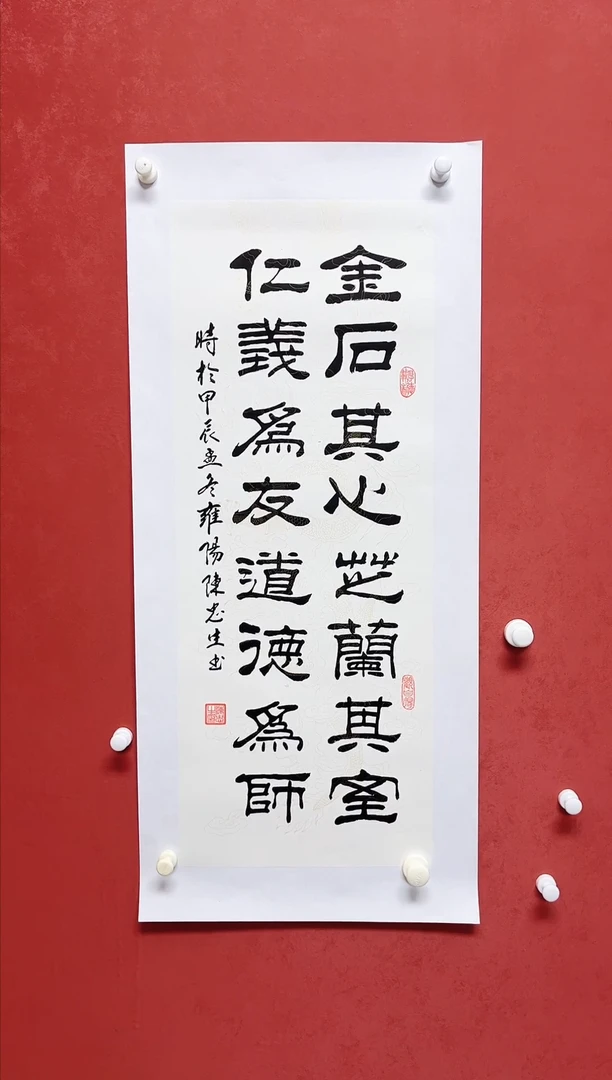 金石其心芝蘭其室
仁義爲友道德爲師
時於甲辰孟冬雍陽陳忠生書